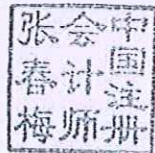 中国注册
会计师
张春梅